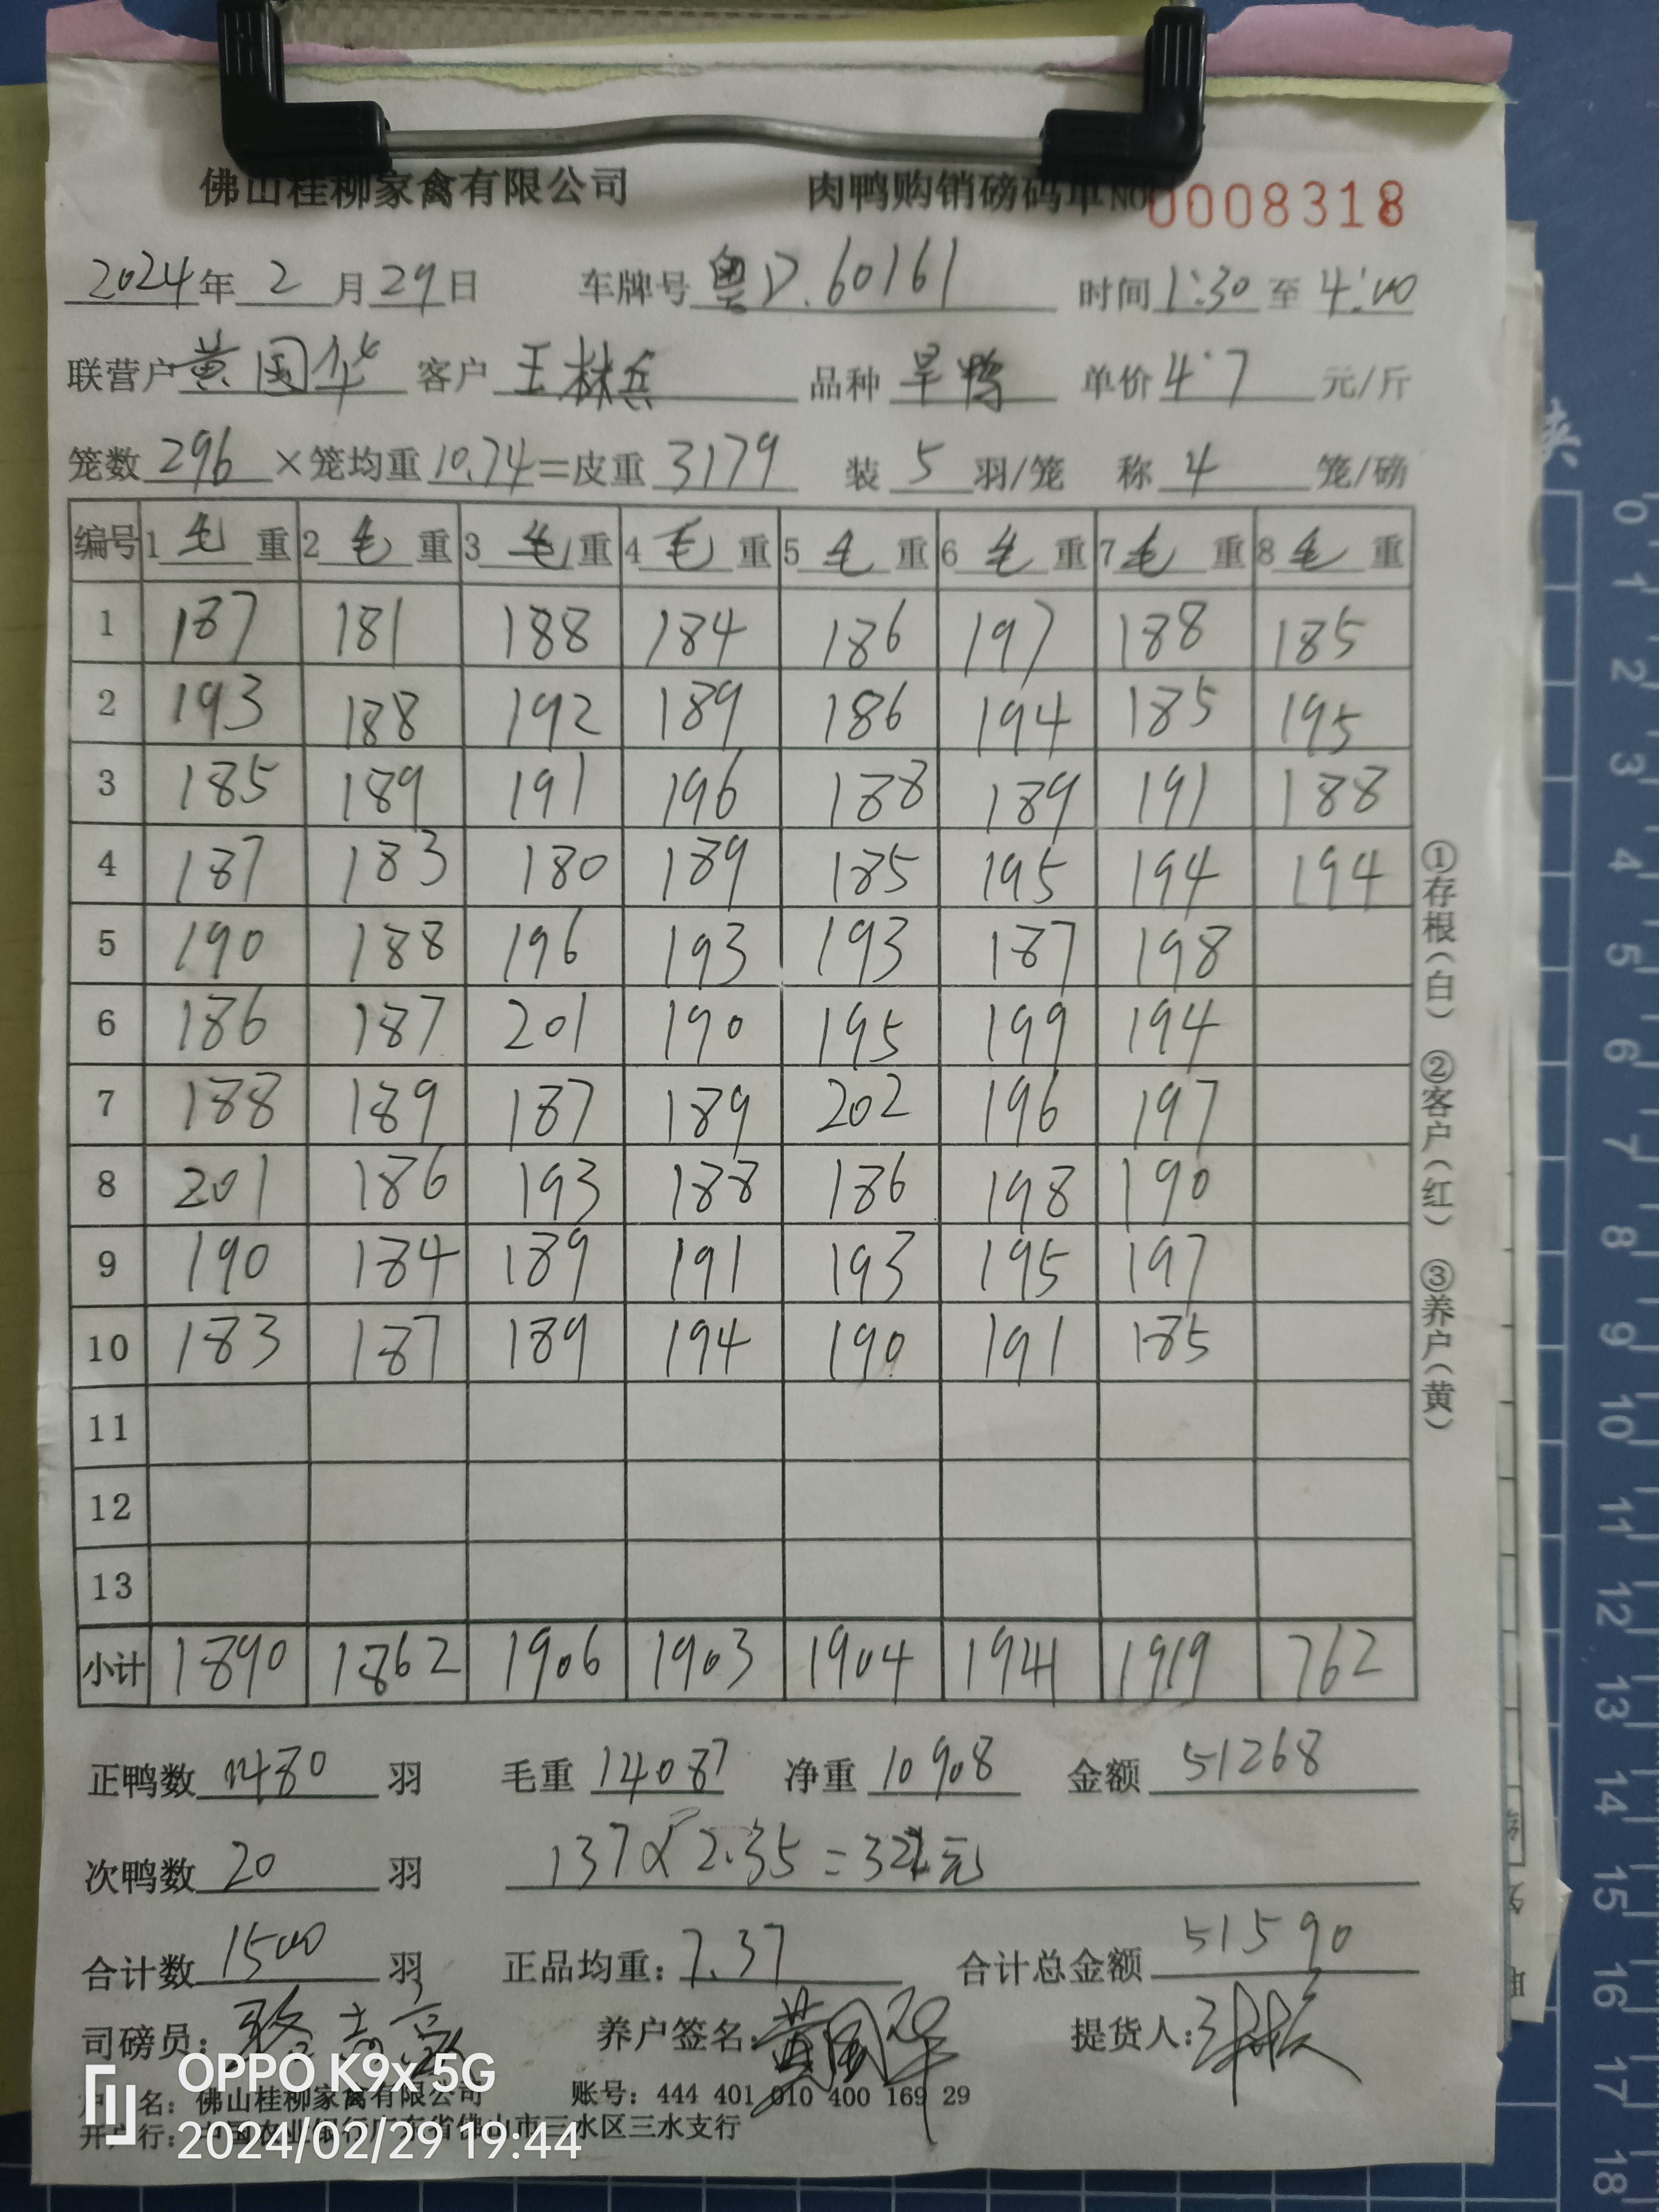 佛山桂柳家禽有限公司 肉鸭购销磅码单 NO 0008318
2024年2月29日 车牌号 粤D.60161 时间 1:30 至 4:00
联营户 黄国华 客户 王林兵 品种 旱鸭 单价 4.7 元/斤
笼数 296 ×笼均重 10.74 =皮重 3179 装 5 羽/笼 称 4 笼/磅
编号 1 毛 重 2 毛 重 3 毛 重 4 毛 重 5 毛 重 6 毛 重 7 毛 重 8 毛 重
1 187 181 188 184 186 197 188 185
2 193 188 192 189 186 194 185 195
3 185 189 191 196 188 189 191 188
4 187 183 180 189 185 195 194 194
5 190 188 196 193 193 187 198
6 186 187 201 190 195 199 194
7 188 189 187 189 202 196 197
8 201 186 193 188 186 198 190
9 190 184 189 191 193 195 197
10 183 187 189 194 190 191 185
11
12
13
小计 1890 1862 1906 1903 1904 1941 1919 762
①存根(白) ②客户(红) ③养户(黄)
正鸭数 1480 羽 毛重 14087 净重 10908 金额 51268
次鸭数 20 羽 137×2.35=322元
合计数 1500 羽 正品均重: 7.37 合计总金额 51590
司磅员: 养户签名: 黄国华 提货人:
户 名: 佛山桂柳家禽有限公司 账号: 444 401 010 400 169 29
开户行: 中国农业银行广东省佛山市三水区三水支行
OPPO K9x 5G
2024/02/29 19:44
0
1
2
3
4
5
6
7
8
9
10
11
12
13
14
15
16
17
18